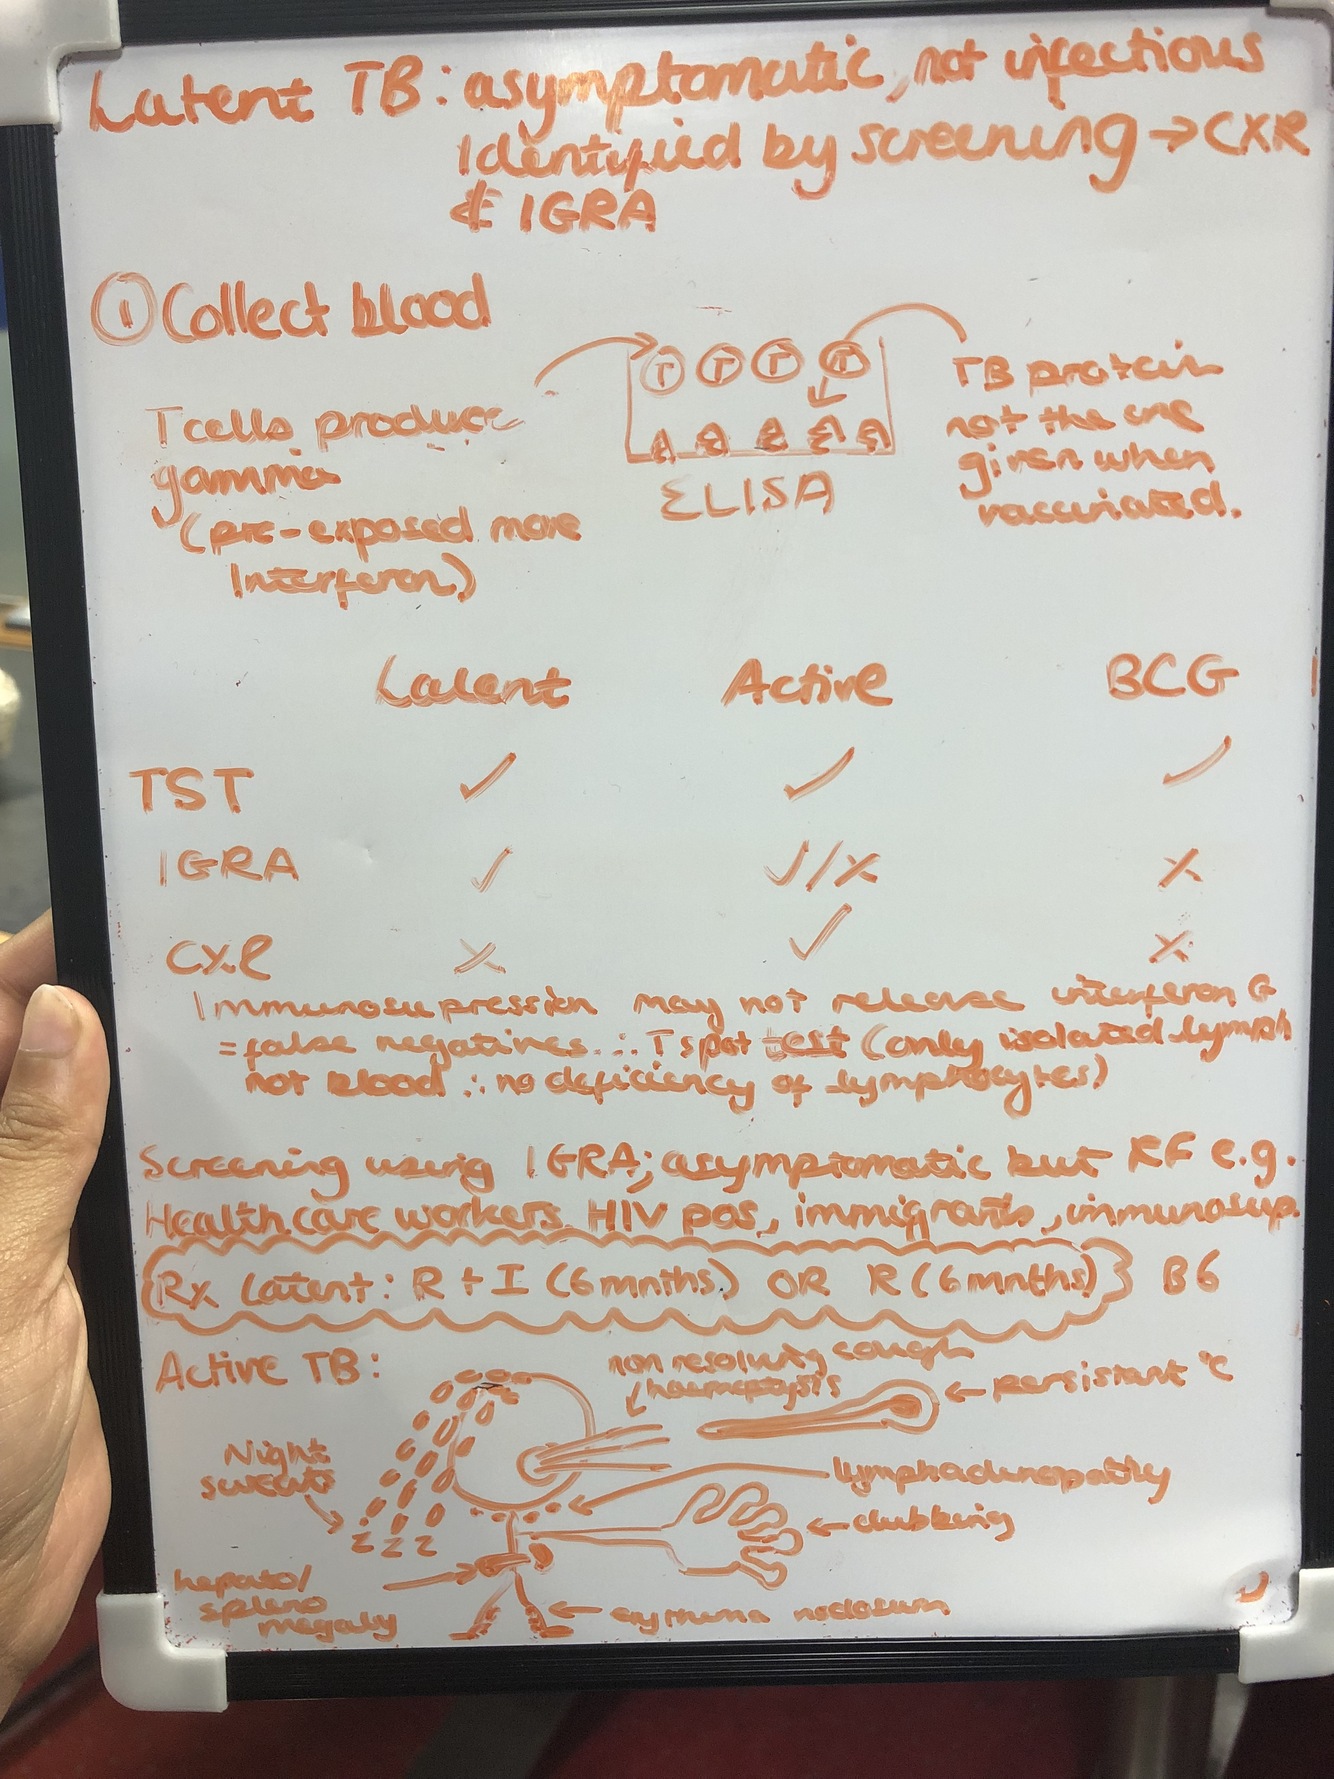 Latent TB: asymptomatic, not infectious
Identified by screening → CXR
& IGRA
① Collect blood
T cells produce
gamma
(pre-exposed more
Interferon)
T T T T
ELISA
TB protein
not the one
given when
vaccinated.
Latent Active BCG
TST ✓ ✓ ✓
IGRA ✓ ✓/x x
CXR x ✓ x
Immunosupression may not release interferon G
= false negatives ∴ T spot test (only isolated lymph
not blood ∴ no deficiency of lymphocytes)
Screening using IGRA; asymptomatic but RF e.g.
Healthcare workers, HIV pos, immigrants, immunosup.
Rx Latent: R + I (6mnths) OR R (6mnths) } B6
Active TB:
non resolving cough
/haemoptysis
← persistant °C
Night
sweats
lymphadenopathy
← clubbing
z z z
hepato/
spleno
megaly
← erythema nodosum